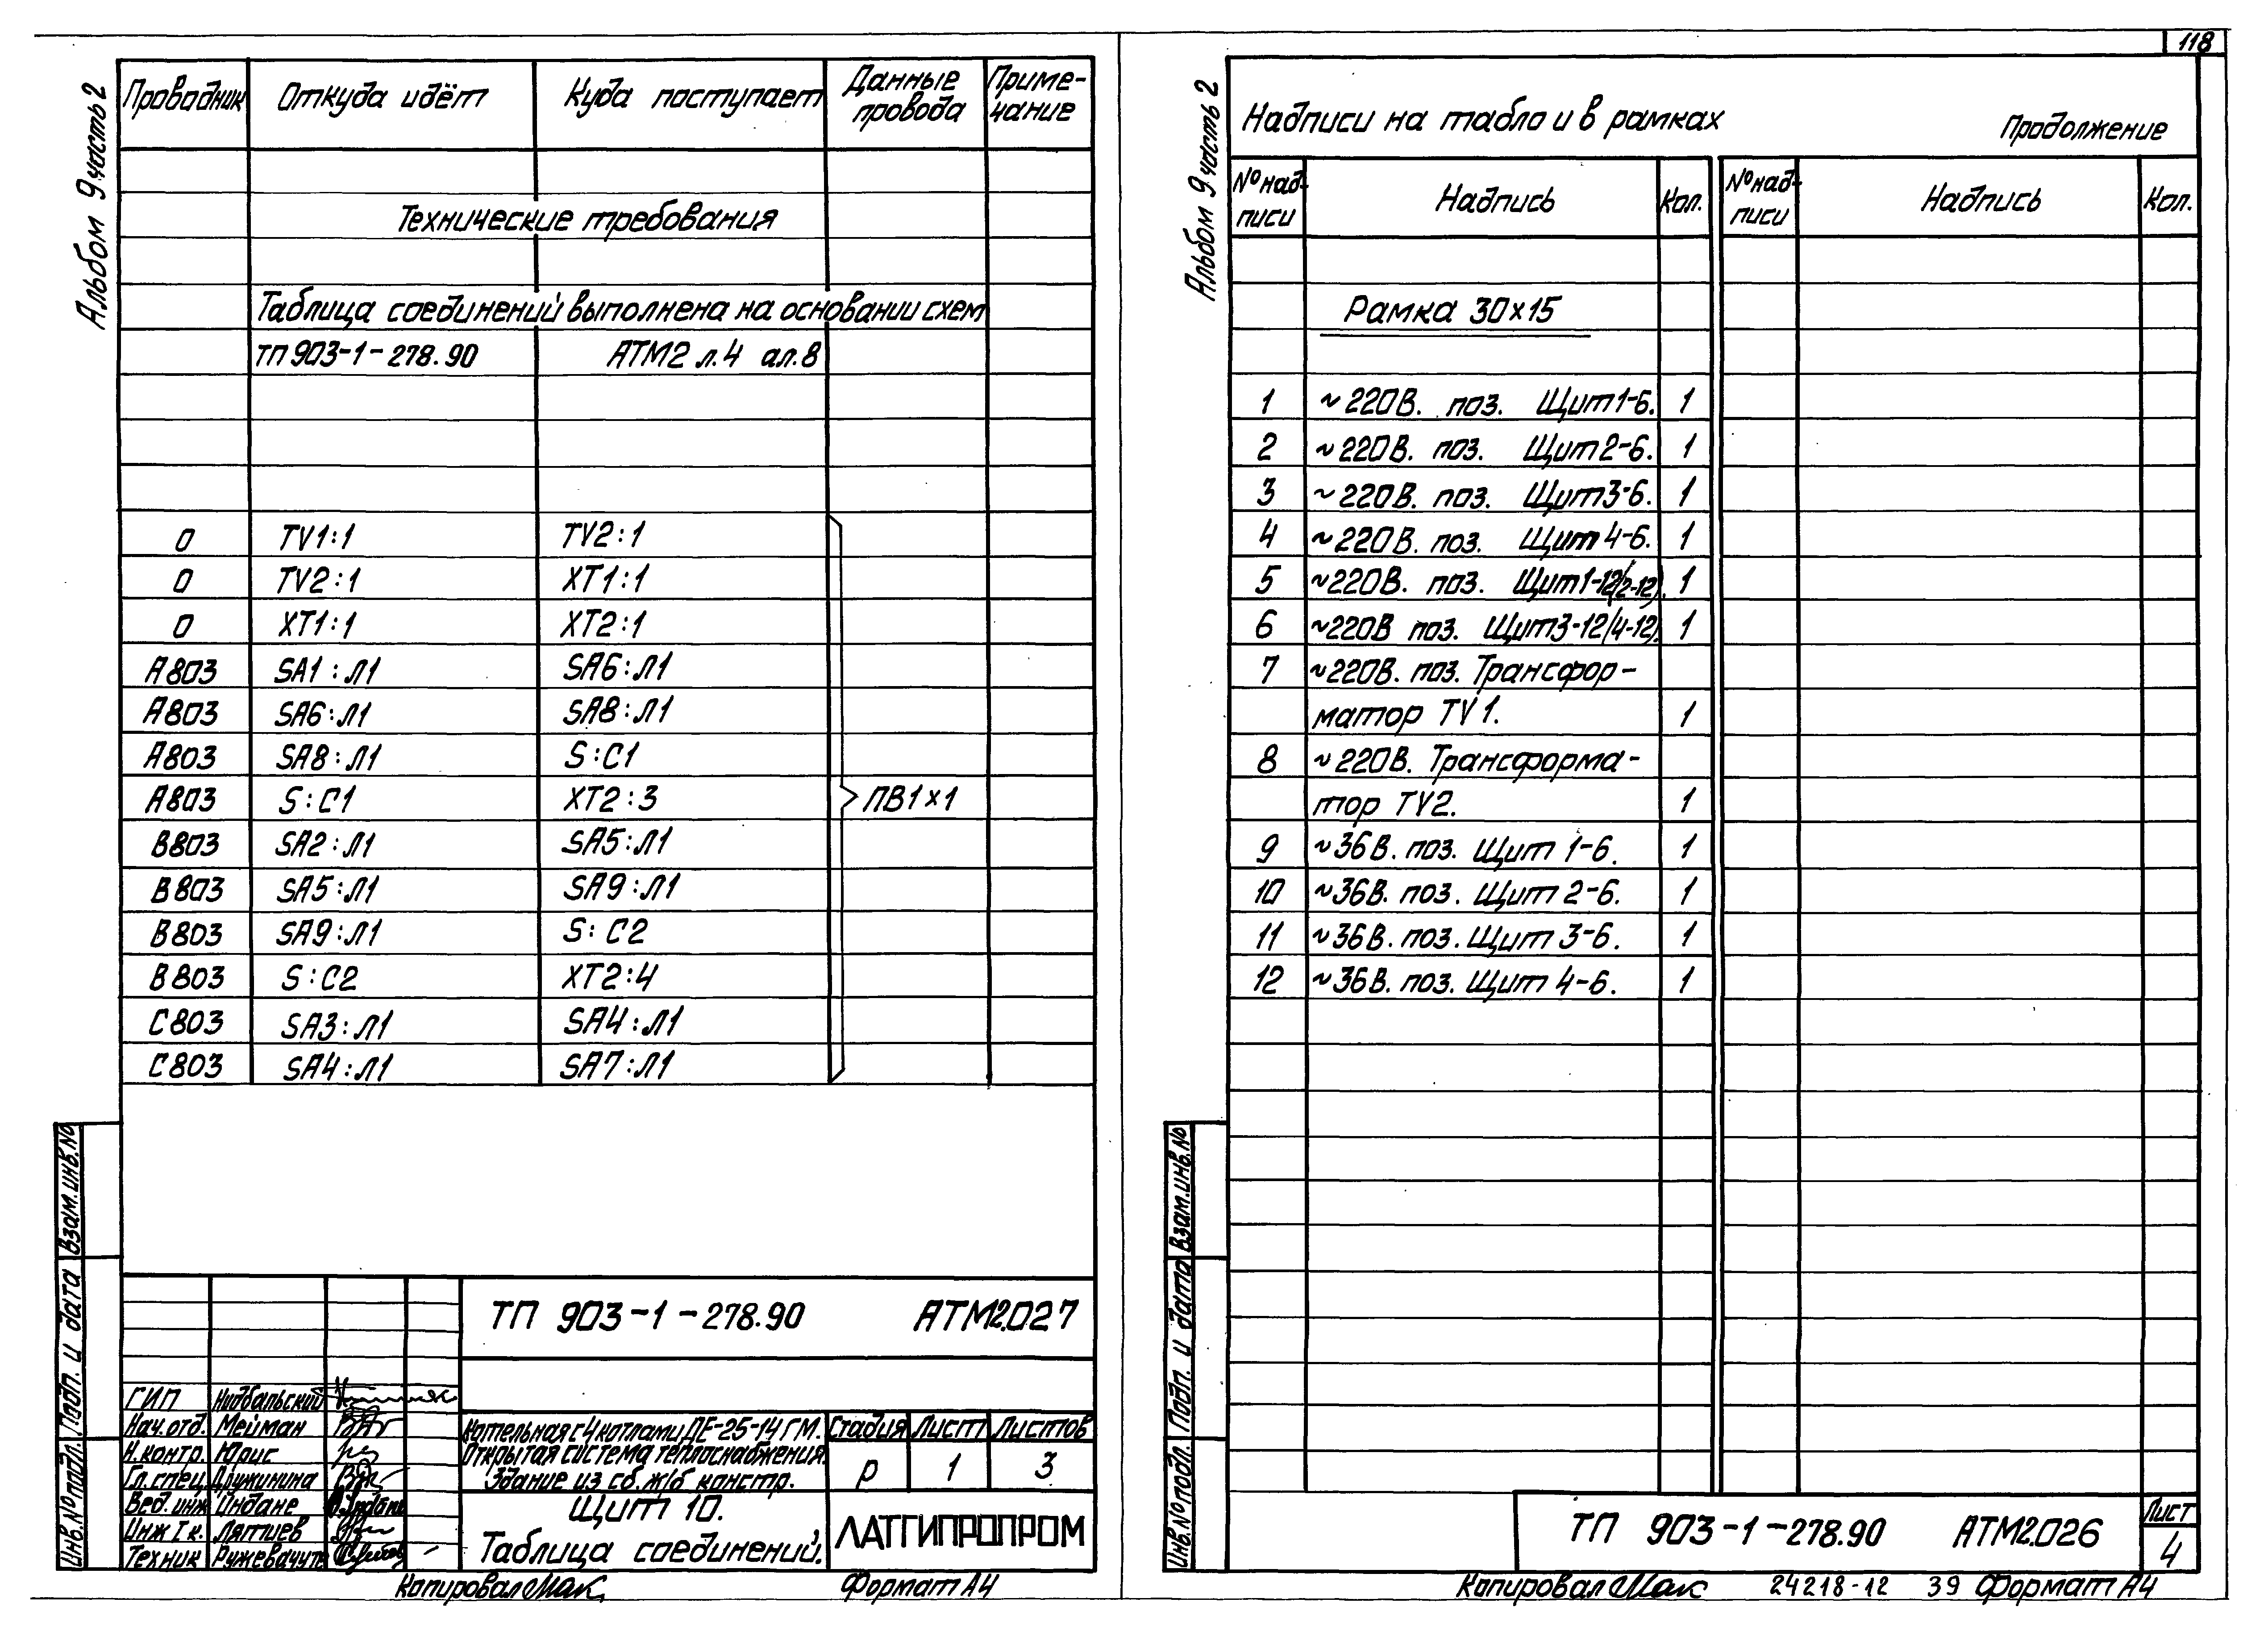 118
Альбом 9 часть 2
Проводник Откуда идёт Куда поступает Данные провода Приме-чание
Технические требования
Таблица соединений выполнена на основании схем
ТП 903-1-278.90 АТМ2 л.4 ал.8
0 TV1:1 TV2:1
0 TV2:1 XT1:1
0 XT1:1 XT2:1
А803 SA1:Л1 SA6:Л1
А803 SA6:Л1 SA8:Л1
А803 SA8:Л1 S:C1
А803 S:C1 XT2:3 ПВ1х1
В803 SA2:Л1 SA5:Л1
В803 SA5:Л1 SA9:Л1
В803 SA9:Л1 S:C2
В803 S:C2 XT2:4
С803 SA3:Л1 SA4:Л1
С803 SA4:Л1 SA7:Л1
Взам.инв.№
Подп. и дата
Инв.№подл.
ТП 903-1-278.90 АТМ2.027
ГИП Нидбальский
Нач.отд. Мейман
Н.контр. Юрис
Гл.спец. Дружинина
Вед.инж Индане
Инж I к. Лятиев
Техник
Котельная с 4 котлами ДЕ-25-14ГМ.
Открытая система теплоснабжения.
Здание из сб.ж/б констр.
Стадия Лист Листов
Р 1 3
Щит 10.
Таблица соединений.
ЛАТГИПРОПРОМ
Копировал Мак Формат А4
Альбом 9 часть 2
Надписи на табло и в рамках
Продолжение
№ над-писи Надпись Кол. № над-писи Надпись Кол.
Рамка 30х15
1 ~220В. поз. Щит 1-6. 1
2 ~220В. поз. Щит 2-6. 1
3 ~220В. поз. Щит 3-6. 1
4 ~220В. поз. Щит 4-6. 1
5 ~220В. поз. Щит 1-12(2-12). 1
6 ~220В поз. Щит 3-12(4-12). 1
7 ~220В. поз. Трансфор-
матор TV1. 1
8 ~220В. Трансформа-
тор TV2. 1
9 ~36В. поз. Щит 1-6. 1
10 ~36В. поз. Щит 2-6. 1
11 ~36В. поз. Щит 3-6. 1
12 ~36В. поз. Щит 4-6. 1
Взам.инв.№
Подп. и дата
Инв.№подл.
ТП 903-1-278.90 АТМ2.026
Лист
4
Копировал Мак 24218-12 39 Формат А4